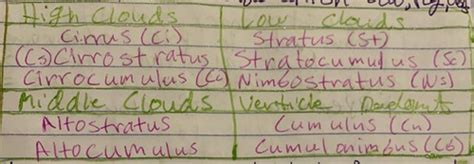 High Clouds Low Clouds
Cirrus (Ci) Stratus (St)
(Cs) Cirrostratus Stratocumulus (Sc)
Cirrocumulus (Cc) Nimbostratus (Ns)
Middle Clouds Verticle
Altostratus Cumulus (Cu)
Altocumulus Cumulonimbus (Cb)